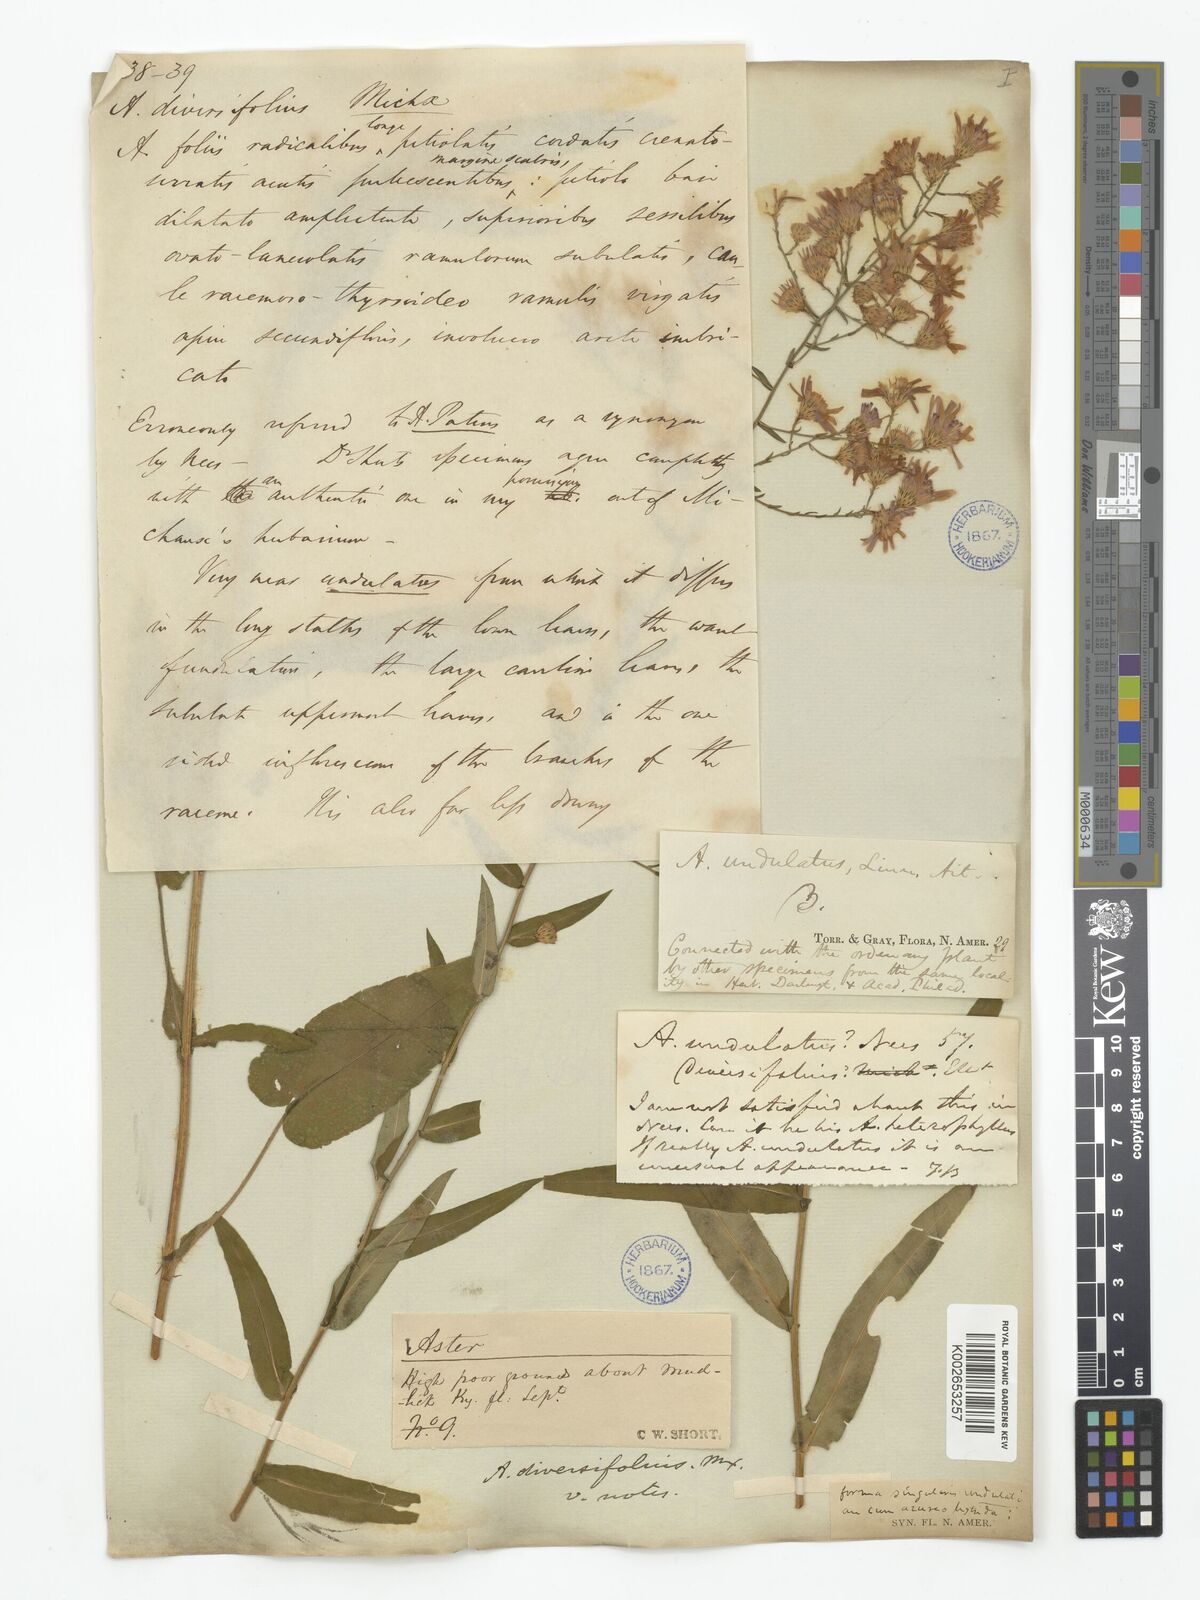 38-39
A. diversifolius Michx
A foliis radicalibus longe petiolatis cordatis crenato-
serratis acutis pubescentibus margine scabris, : petiolo basi
dilatato amplectente, superioribus sessilibus
ovato-lanceolatis ramulorum subulatis, cau-
le racemoso-thyrsoideo ramulis virgatis
apice secundifloris, involucro arcte imbri-
cato
Erroneously referred to A. Patens as a synonym
by Nees - Dr Short's specimens agree completely
with an authentic one in my possession out of Mi-
chaux's herbarium -
Very near undulatus from which it differs
in the long stalks of the lower leaves, the want
of undulation, the large cauline leaves, the
subulate uppermost leaves, and in the one
sided inflorescence of the branches of the
raceme. It is also far less downy
I
HERBARIUM
1867.
HOOKERIANUM
A. undulatus, Linn, Ait.
B.
TORR. & GRAY, FLORA, N. AMER.
Connected with the ordinary plant
by other specimens from the same local-
ity in Herb. Darlingt. & Acad. Philad.
A. undulatus? Nees 57.
Diversifolius? Mich Ell
I am not satisfied about this in
Nees. Can it be his A. heterophyllus
If really A. undulatus it is an
unusual appearance -
HERBARIUM
1867.
HOOKERIANUM
Aster
High poor ground about Mud-
lick Ky. fl. Septr.
No. 9.
C W. SHORT.
A. diversifolius. Mx.
v. notes.
forma singularis undulati
an cum azureo hybrida?
SYN. FL. N. AMER.
ROYAL BOTANIC GARDENS KEW
K002653257
M000634
Don Williams
Density
centimetres
Royal Botanic Gardens
KEW
0 1 2 3 4 5 6 7 8 9 10
cm
copyright reserved